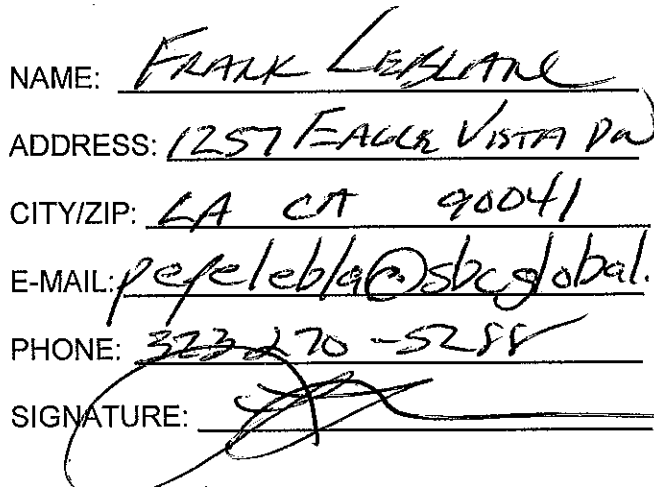 NAME: FRANK LEBLANC
ADDRESS: 1257 EAGLE VISTA DR
CITY/ZIP: LA CA 90041
E-MAIL: pepelebla@sbcglobal.
PHONE: 323 270-5288
SIGNATURE: